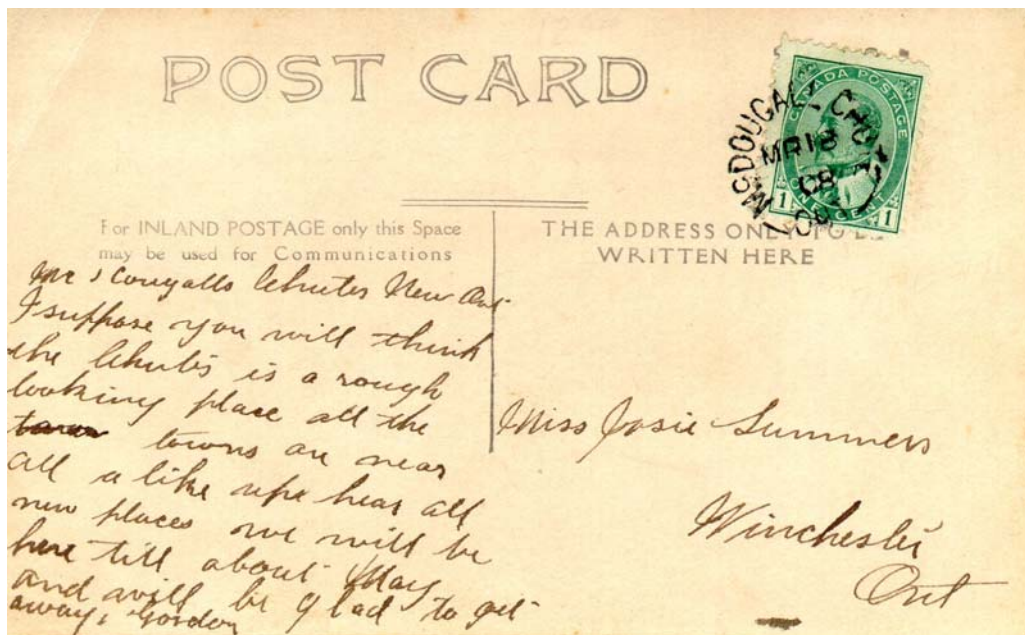 POST CARD
CANADA POSTAGE
1 ONE CENT 1
McDOUGALL CHUTE
MR 18
08
ONT
For INLAND POSTAGE only this Space
may be used for Communications
THE ADDRESS ONLY TO BE
WRITTEN HERE
Chutes New Ont
I suppose you will think
the Chutes is a rough
looking place all the
towns are near
all a like upe hear all
new places we will be
here till about May
and will be glad to get
away, Gordon
Miss Josie Summers
Winchester
Ont